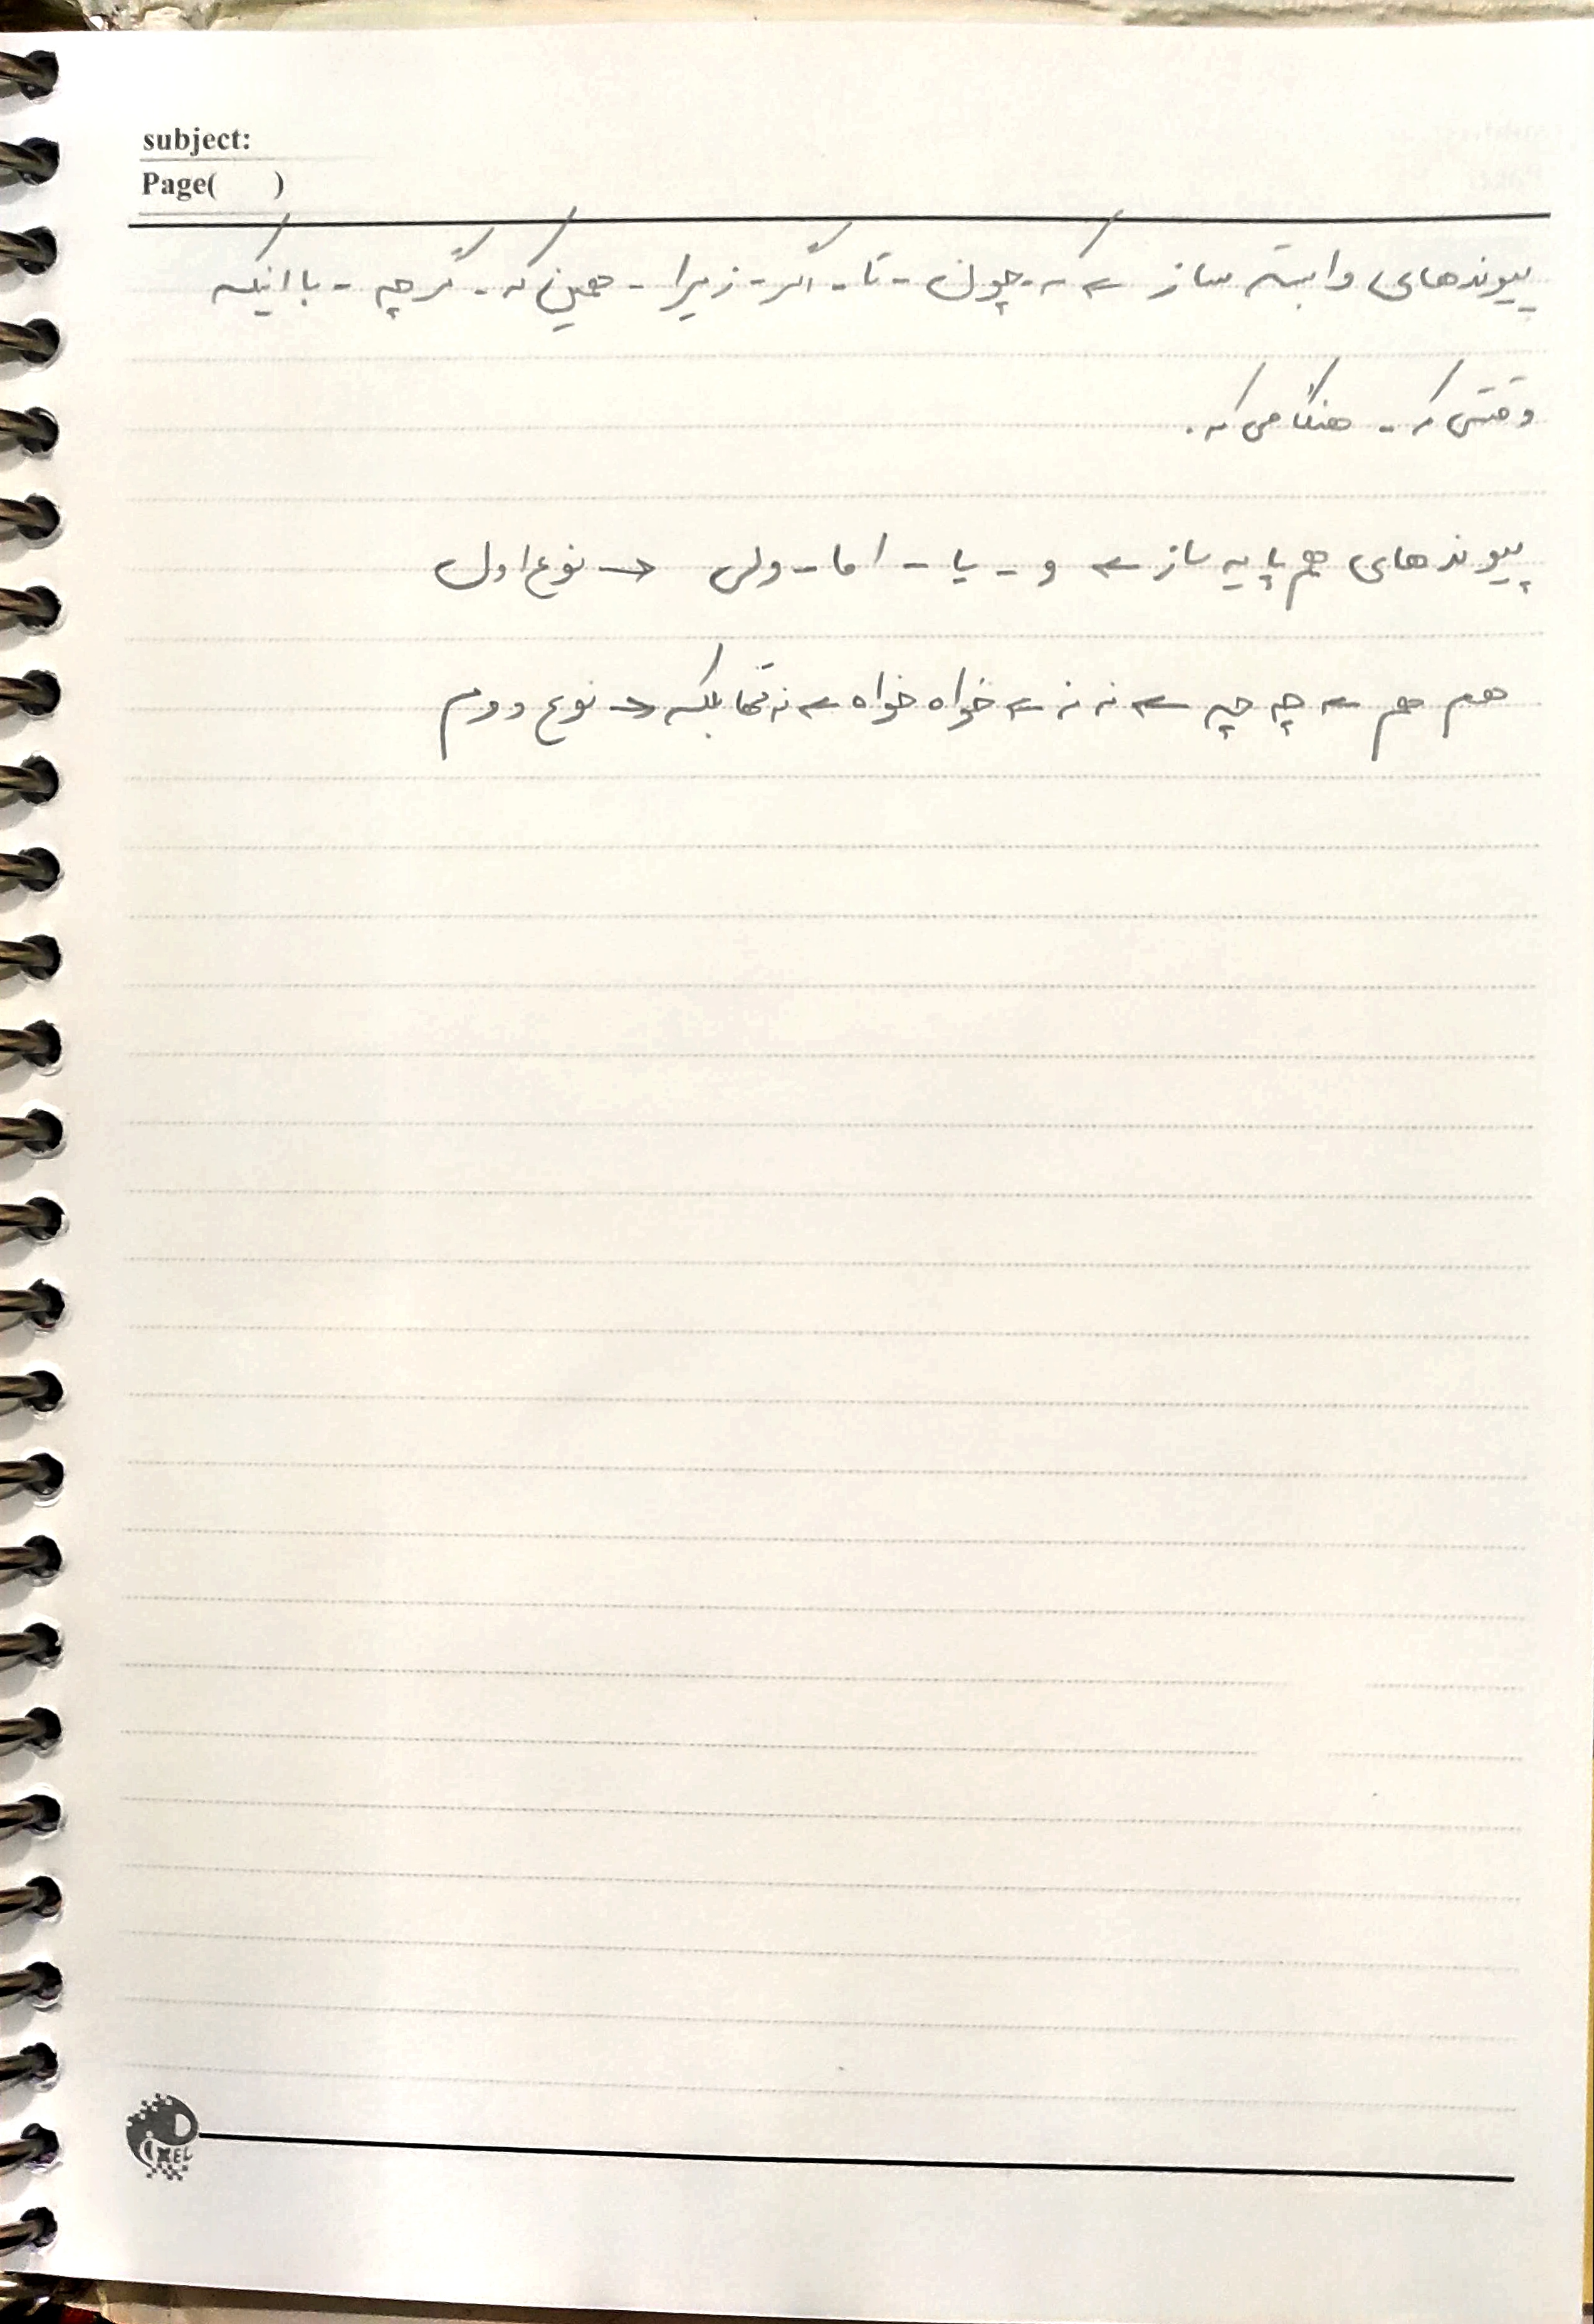 subject:
Page(    )
پیوندهای وابسته ساز ← که - چون - تا - اگر - زیرا - همین که - گرچه - با اینکه
وقتی که - هنگامی که.
پیوندهای هم پایه ساز ← و - یا - اما - ولی → نوع اول
هم هم ← چه چه ← نه نه ← خواه خواه ← نه تنها بلکه → نوع دوم
iXEL